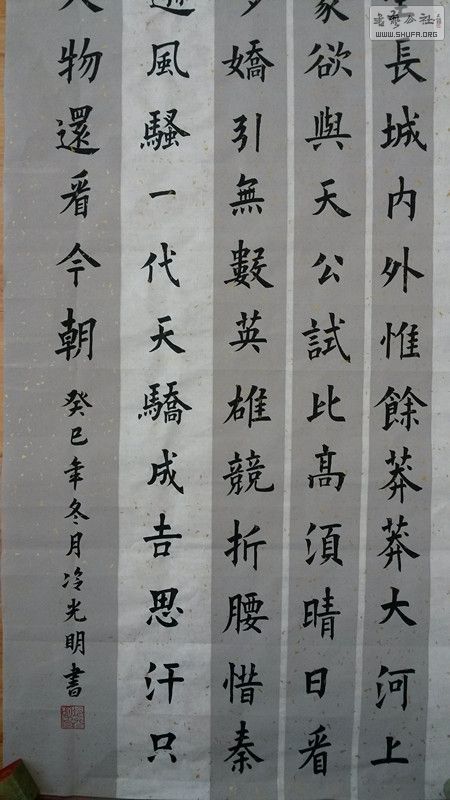 長城内外惟餘莽莽大河上
欲與天公試比髙須晴日看
嬌引無數英雄競折腰惜秦
風騷一代天驕成吉思汗只
物還看今朝
癸巳年冬月冷光明書
书艺公社
WWW.SHUFA.ORG